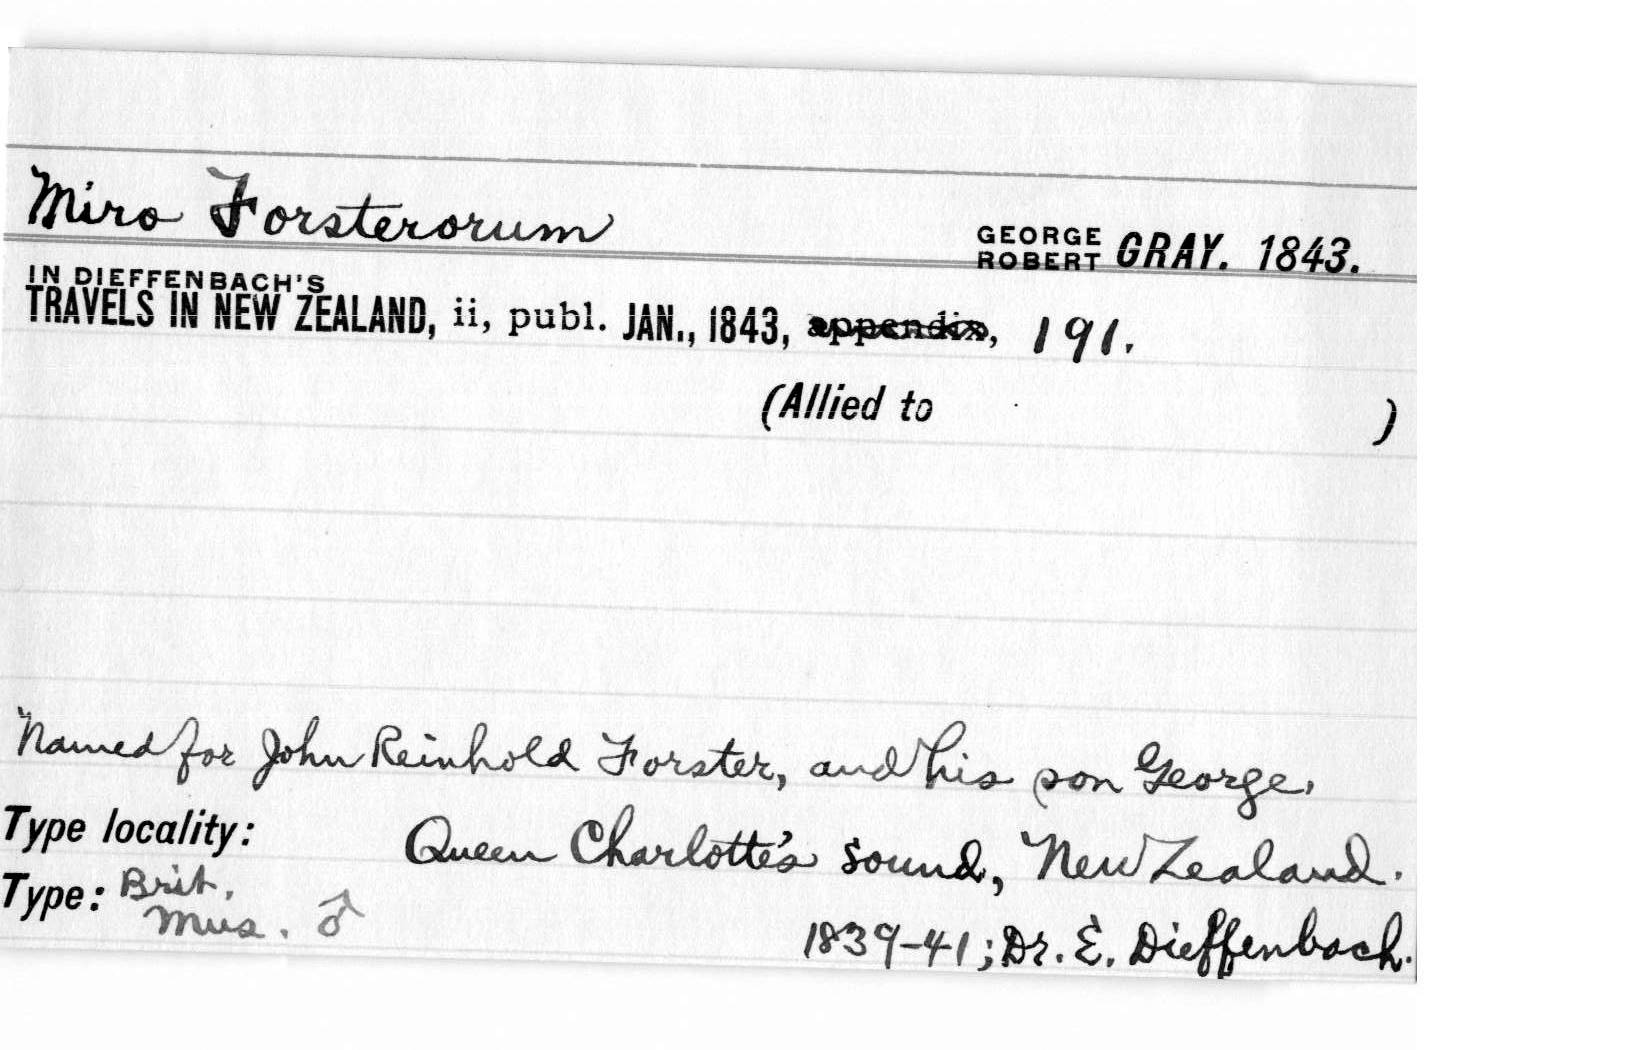 Miro Forsterorum
GEORGE ROBERT GRAY. 1843.
IN DIEFFENBACH'S
TRAVELS IN NEW ZEALAND, ii, publ. JAN., 1843, appendix, 191.
(Allied to )
Named for John Reinhold Forster, and his son George.
Type locality: Queen Charlotte's Sound, New Zealand.
Type: Brit. Mus. ♂
1839-41; Dr. E. Dieffenbach.